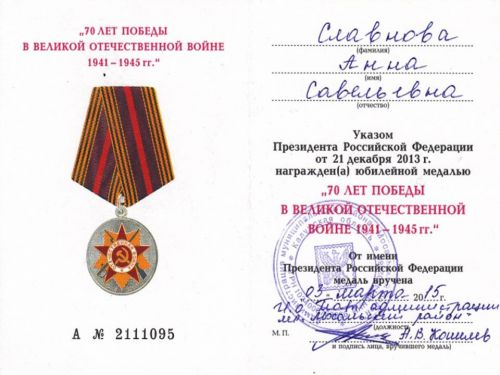 „70 ЛЕТ ПОБЕДЫ
В ВЕЛИКОЙ ОТЕЧЕСТВЕННОЙ ВОЙНЕ
1941 – 1945 гг.“
А № 2111095
Славнова
(фамилия)
Анна
(имя)
Савельевна
(отчество)
Указом
Президента Российской Федерации
от 21 декабря 2013 г.
награжден(а) юбилейной медалью
„70 ЛЕТ ПОБЕДЫ
В ВЕЛИКОЙ ОТЕЧЕСТВЕННОЙ
ВОЙНЕ 1941 – 1945 гг.“
От имени
Президента Российской Федерации
медаль вручена
03 марта 2015
администрации
район"
(должность)
М.П.
А.В. Кошелев
и подпись лица, вручившего медаль)